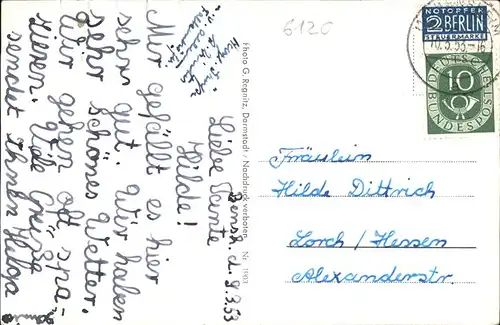 Bensh. d. 9.3.53
Liebe Tante
Hilde!
Mir gefällt es hier
sehr gut. Wir haben
sehr schönes Wetter.
Wir gehen oft spa-
zieren. Viele Grüße
sendet Ihnen Helga
Photo G. Rognitz, Darmstadt / Nachdruck verboten. Nr. 1903
6120
NOTOPFER
2 BERLIN
STEUERMARKE
10.3.53-16
DEUTSCHE
BUNDESPOST
10
Fräulein
Hilda Dittrich
Lorch/Hessen
Alexanderstr.